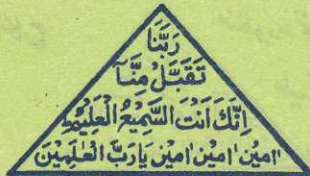 رَبَّنَا
تَقَبَّلْ مِنَّآ
اِنَّكَ اَنْتَ السَّمِيْعُ الْعَلِيْمُ
اٰمِيْن' اٰمِيْن' اٰمِيْن يَارَبَّ الْعٰلَمِيْنَ